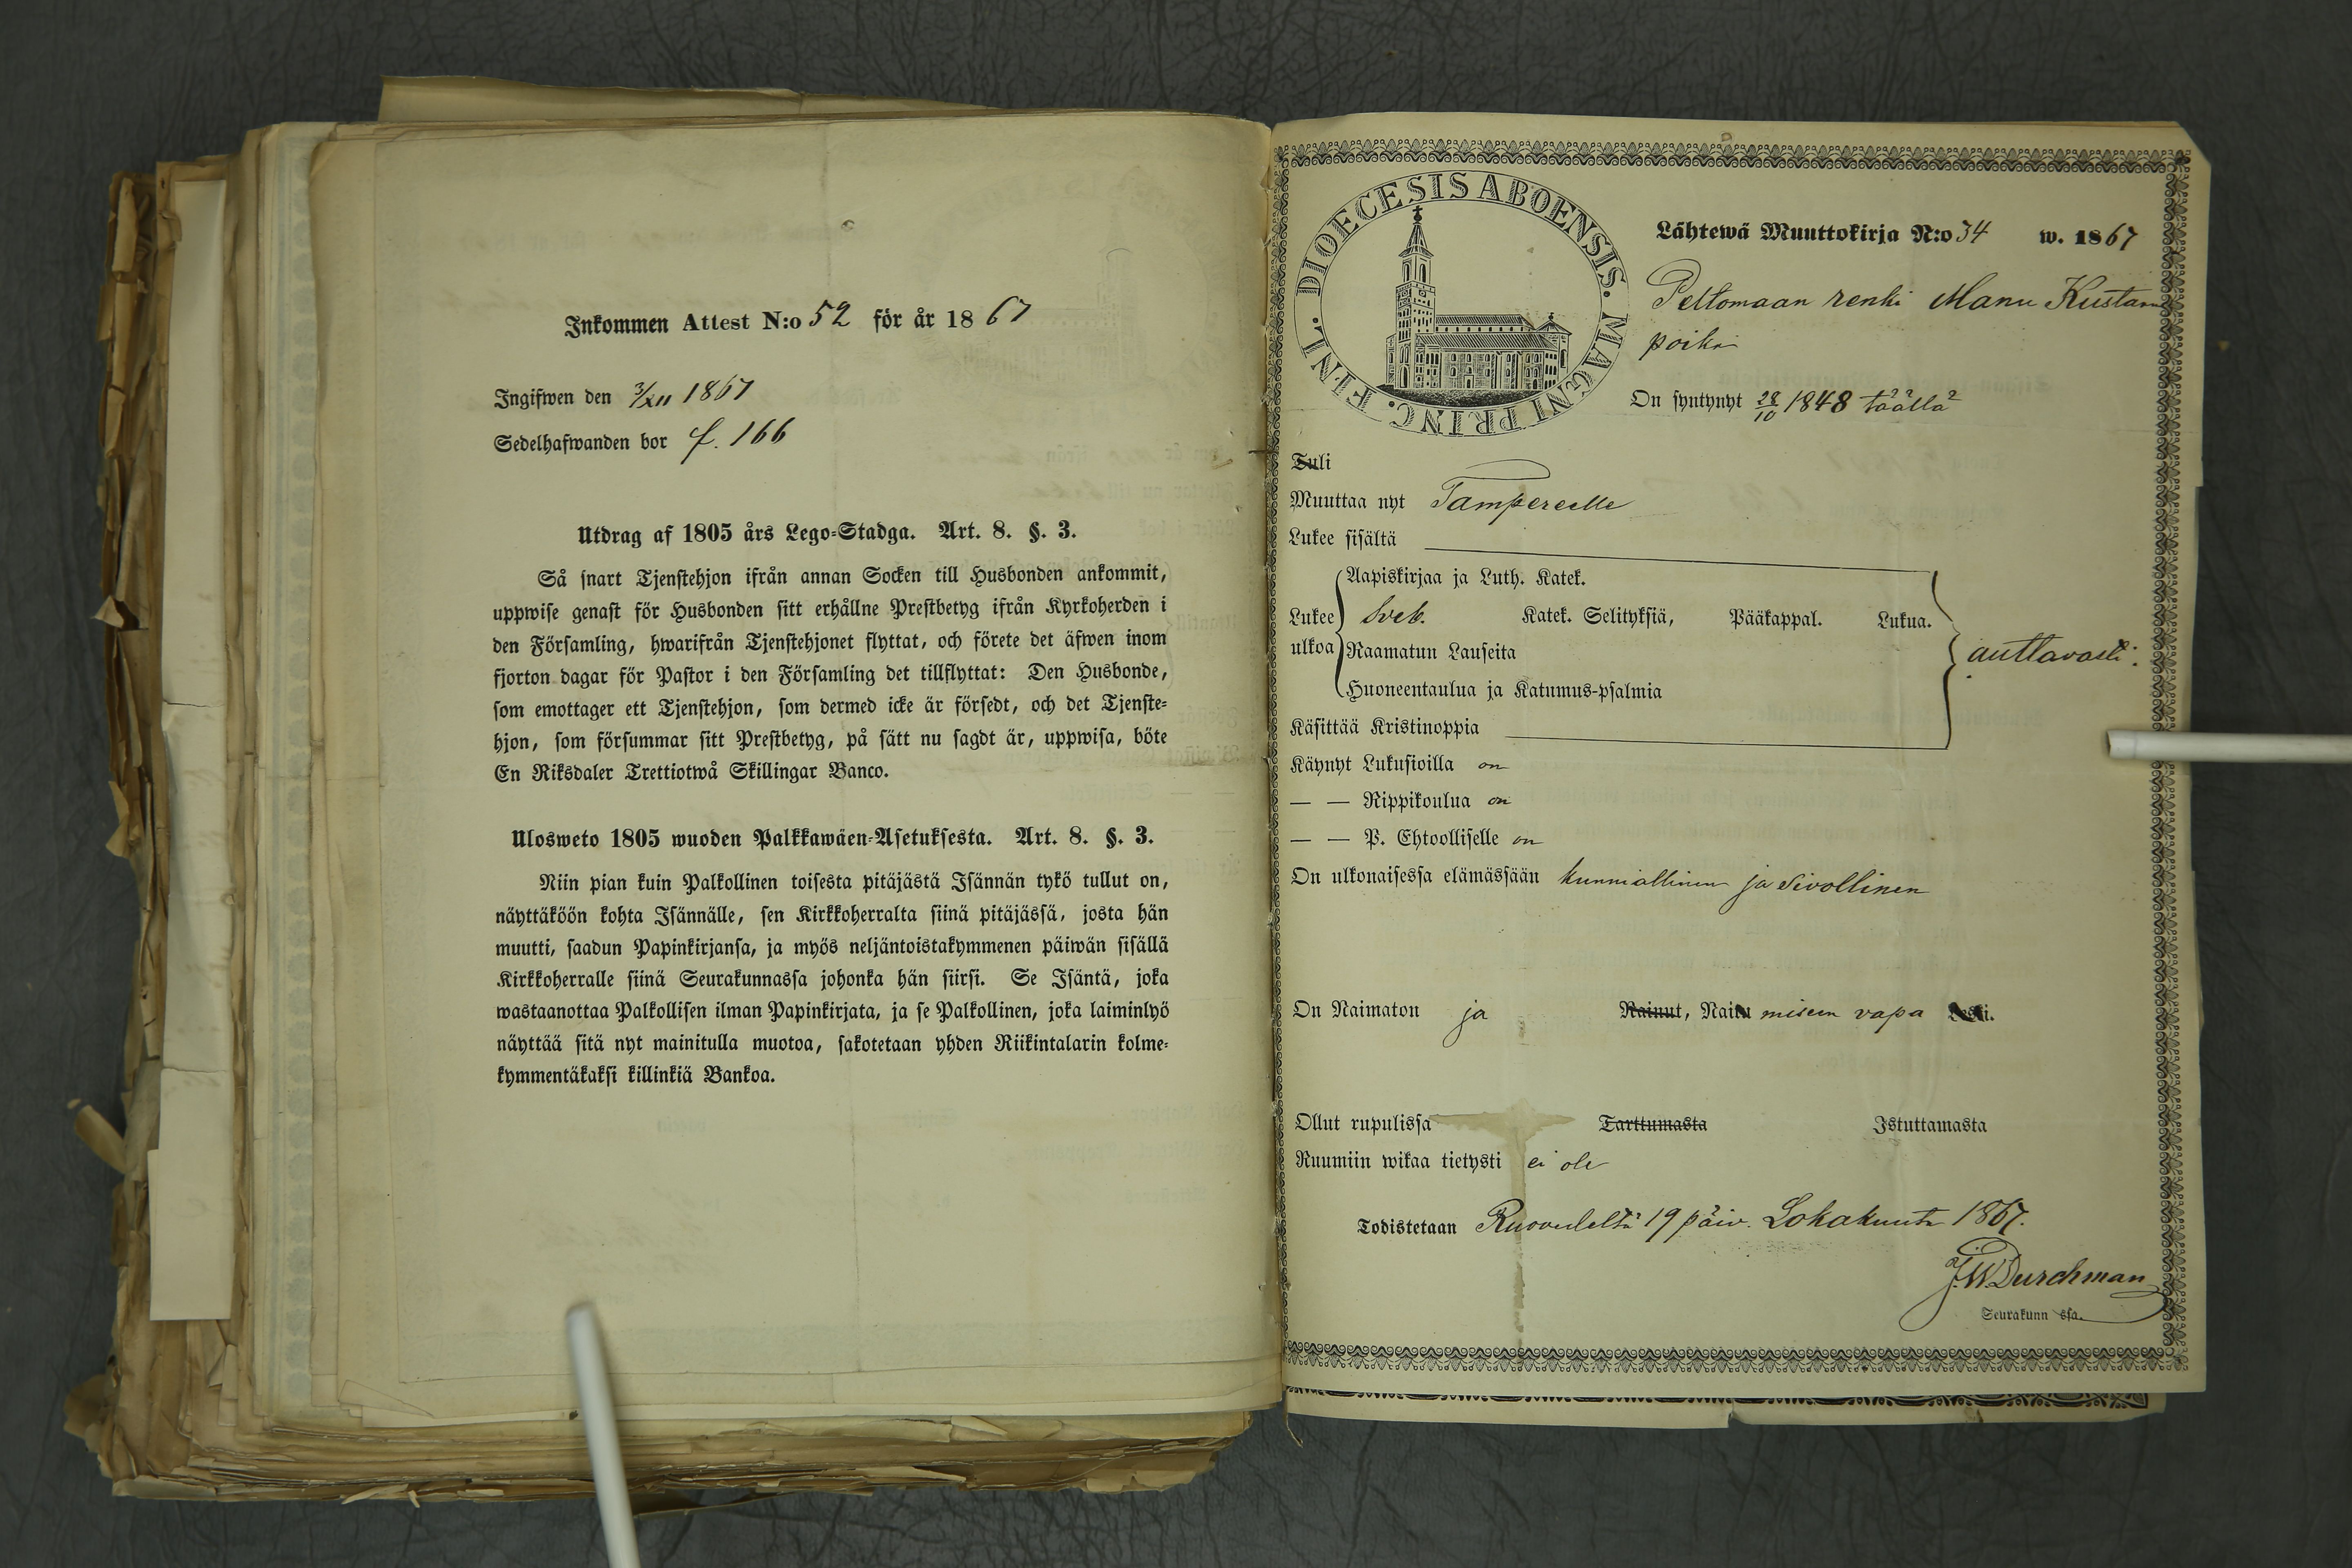 Inkommen Attest N:o 52 för år 1867
Ingifwen den 3/XII 1867
Sedelhafwanden bor f. 166
Utdrag af 1805 års Lego-Stadga. Art. 8. §. 3.
Så snart Tjenstehjon ifrån annan Socken till Husbonden ankommit,
uppwise genast för Husbonden sitt erhållne Prestbetyg ifrån Kyrkoherden i
den Församling, hwarifrån Tjenstehjonet flyttat, och förete det äfwen inom
fjorton dagar för Pastor i den Församling det tillflyttat: Den Husbonde,
som emottager ett Tjenstehjon, som dermed icke är försedt, och det Tjenste-
hjon, som försummar sitt Prestbetyg, på sätt nu sagdt är, uppwisa, böte
En Riksdaler Trettiotwå Skillingar Banco.
Ulosweto 1805 wuoden Palkkawäen-Asetuksesta. Art. 8. §. 3.
Niin pian kuin Palkollinen toisesta pitäjästä Isännän tykö tullut on,
näyttäköön kohta Isännälle, sen Kirkkoherralta siinä pitäjässä, josta hän
muutti, saadun Papinkirjansa, ja myös neljäntoistakymmenen päiwän sisällä
Kirkkoherralle siinä Seurakunnassa johonka hän siirsi. Se Isäntä, joka
wastaanottaa Palkollisen ilman Papinkirjata, ja se Palkollinen, joka laiminlyö
näyttää sitä nyt mainitulla muotoa, sakotetaan yhden Riikintalarin kolme-
kymmentäkaksi killinkiä Bankoa.
DIOECESIS ABOENSIS. MAGNI PRINC. FINL.
Lähtewä Muuttokirja N:o 34 w. 1867
Peltomaan renki Manu Kustaan
poika
On syntynyt 28/10 1848 täällä
Tuli
Muuttaa nyt Tampereelle
Lukee sisältä
Aapiskirjaa ja Luth. Katek.
Lukee Sveb. Katek. Selityksiä, Pääkappal. Lukua.
ulkoa Raamatun Lauseita
auttavasti.
Huoneentaulua ja Katumus-psalmia
Käsittää Kristinoppia
Käynyt Lukusioilla on
— — Rippikoulua on
— — P. Ehtoolliselle on
On ulkonaisessa elämässään kunniallinen ja sivollinen
On Naimaton ja Nainut, Nai misen vapa Leski.
Ollut rupulissa Tarttumasta Istuttamasta
Ruumiin wikaa tietysti ei ole
Todistetaan Ruovedeltä 19 päiv. Lokakuuta 1867.
F.W. Durchman
Seurakunn ssa.